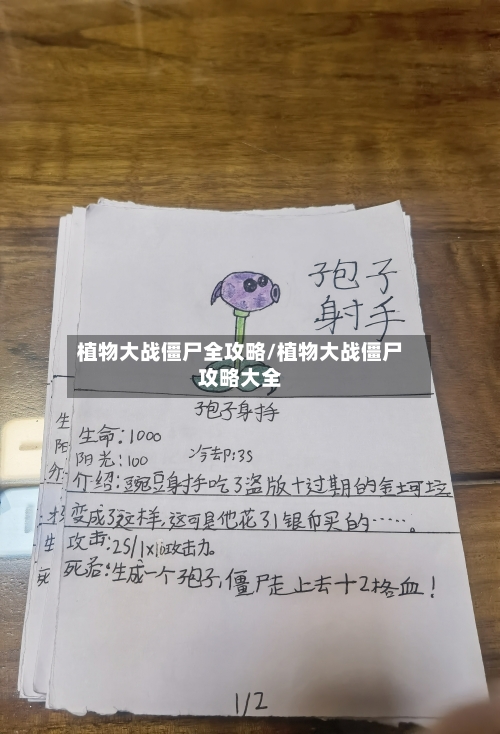 孢子
射手
植物大战僵尸全攻略/植物大战僵尸
攻略大全
孢子射手
生命:1000
阳光:100 冷却:3S
介绍:豌豆射手吃了盗版十过期的金坷垃
变成了这样,这可是他花了1银币买的……。
攻击:2S/1x10攻击力。
死后:生成一个孢子,僵尸走上去十2格血!
1/2
生
阳
介
生
死